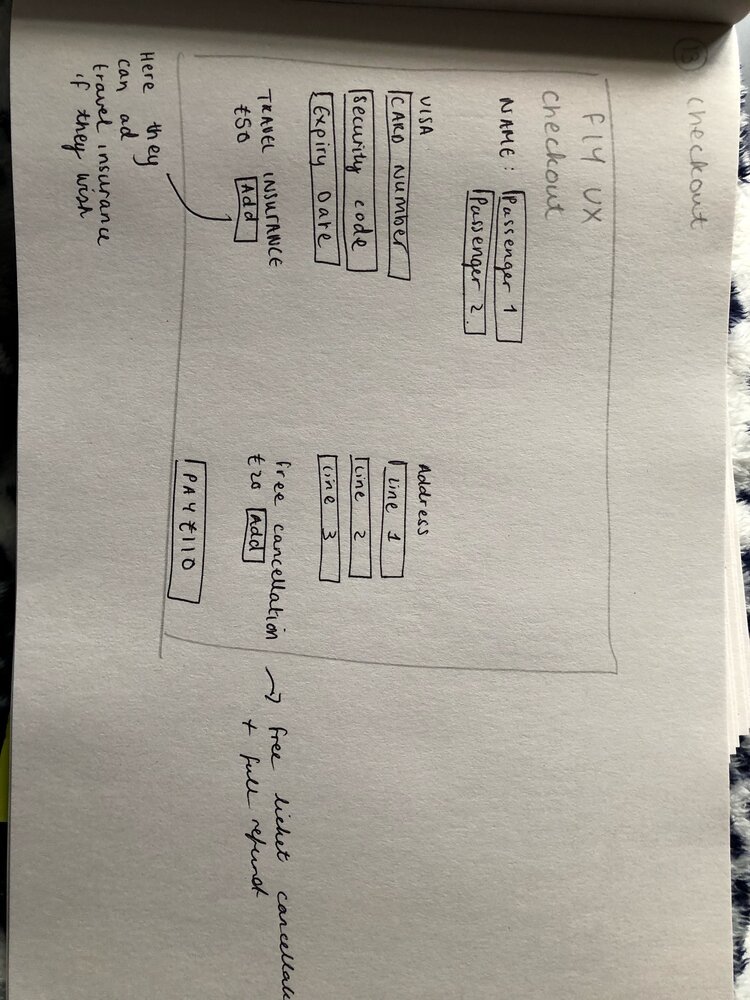 13 checkout
fly UX
checkout
NAME: Passenger 1
Passenger 2
VISA
CARD NUMBER
Security code
Expiry Date
Address
Line 1
Line 2
Line 3
TRAVEL INSURANCE
£50 Add
free cancellation → free ticket cancellati
£20 Add + full refund
PAY £110
Here they
can ad
travel insurance
if they wish